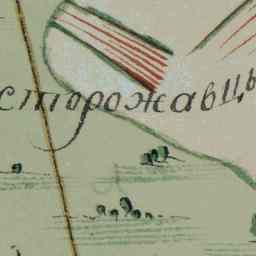 сторожавцы